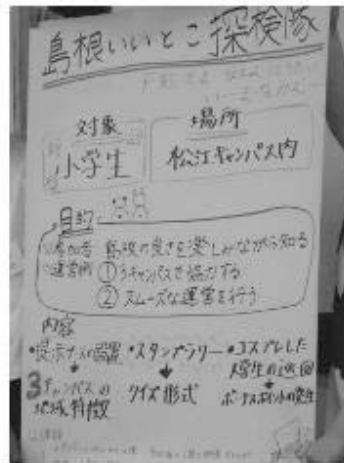 島根いいとこ探検隊
対象
小学生
場所
松江キャンパス内
目的
参加者 島根の良さを楽しみながら知る
運営側 ①3キャンパスで協力する
② スムーズな運営を行う
内容
・展示ブースの設置
3キャンパスの
地域特徴
・スタンプラリー
クイズ形式
・コスプレした
大学生の巡回
ボーナスポイントの発生